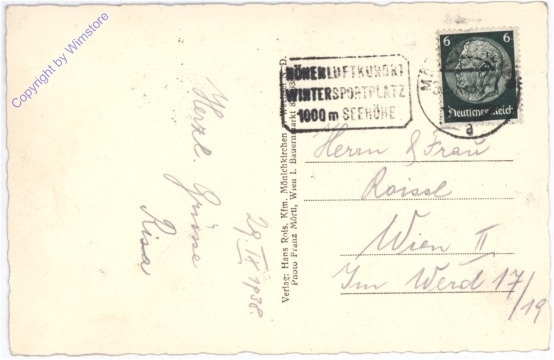 Copyright by Wimstore
Herzl. Grüsse
Risa
29. IX 1938.
Verlag: Hans Rois, Kfm. Mönichkirchen
Photo Franz Mörtl, Wien I. Bauernmarkt
HÖHENLUFTKURORT
WINTERSPORTPLATZ
1000 m SEEHÖHE
6 6
Deutsches Reich
a
Herrn & Frau
Roissl
Wien II
Im Werd 17/19